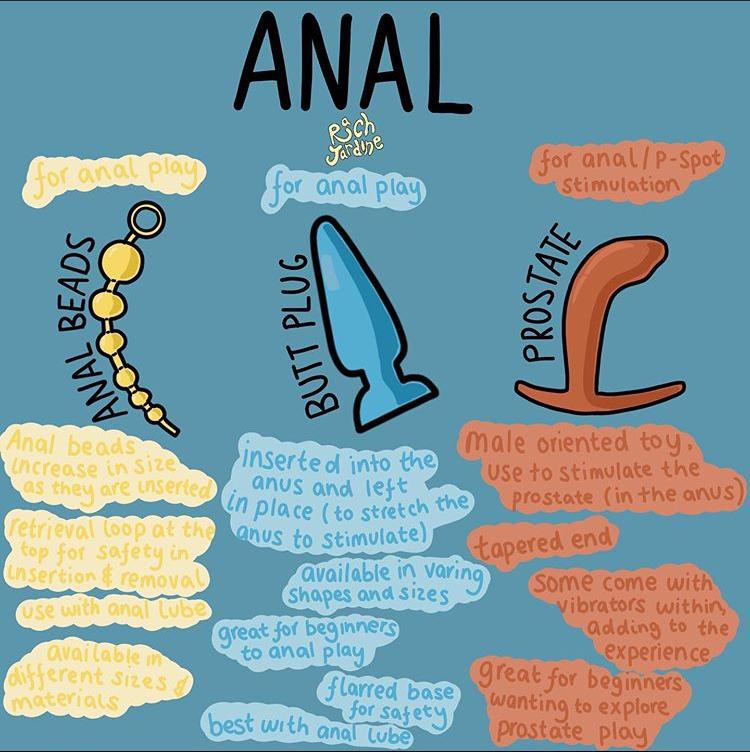 ANAL
Rach
Jardine
for anal play
ANAL BEADS
Anal beads
increase in size
as they are inserted
retrieval loop at the
top for safety in
insertion & removal
use with anal lube
available in
different sizes &
materials
for anal play
BUTT PLUG
inserted into the
anus and left
in place (to stretch the
anus to stimulate)
available in varing
shapes and sizes
great for beginners
to anal play
flarred base
for safety
best with anal lube
for anal/P-Spot
stimulation
PROSTATE
male oriented toy,
use to stimulate the
prostate (in the anus)
tapered end
some come with
vibrators within,
adding to the
experience
great for beginners
wanting to explore
prostate play